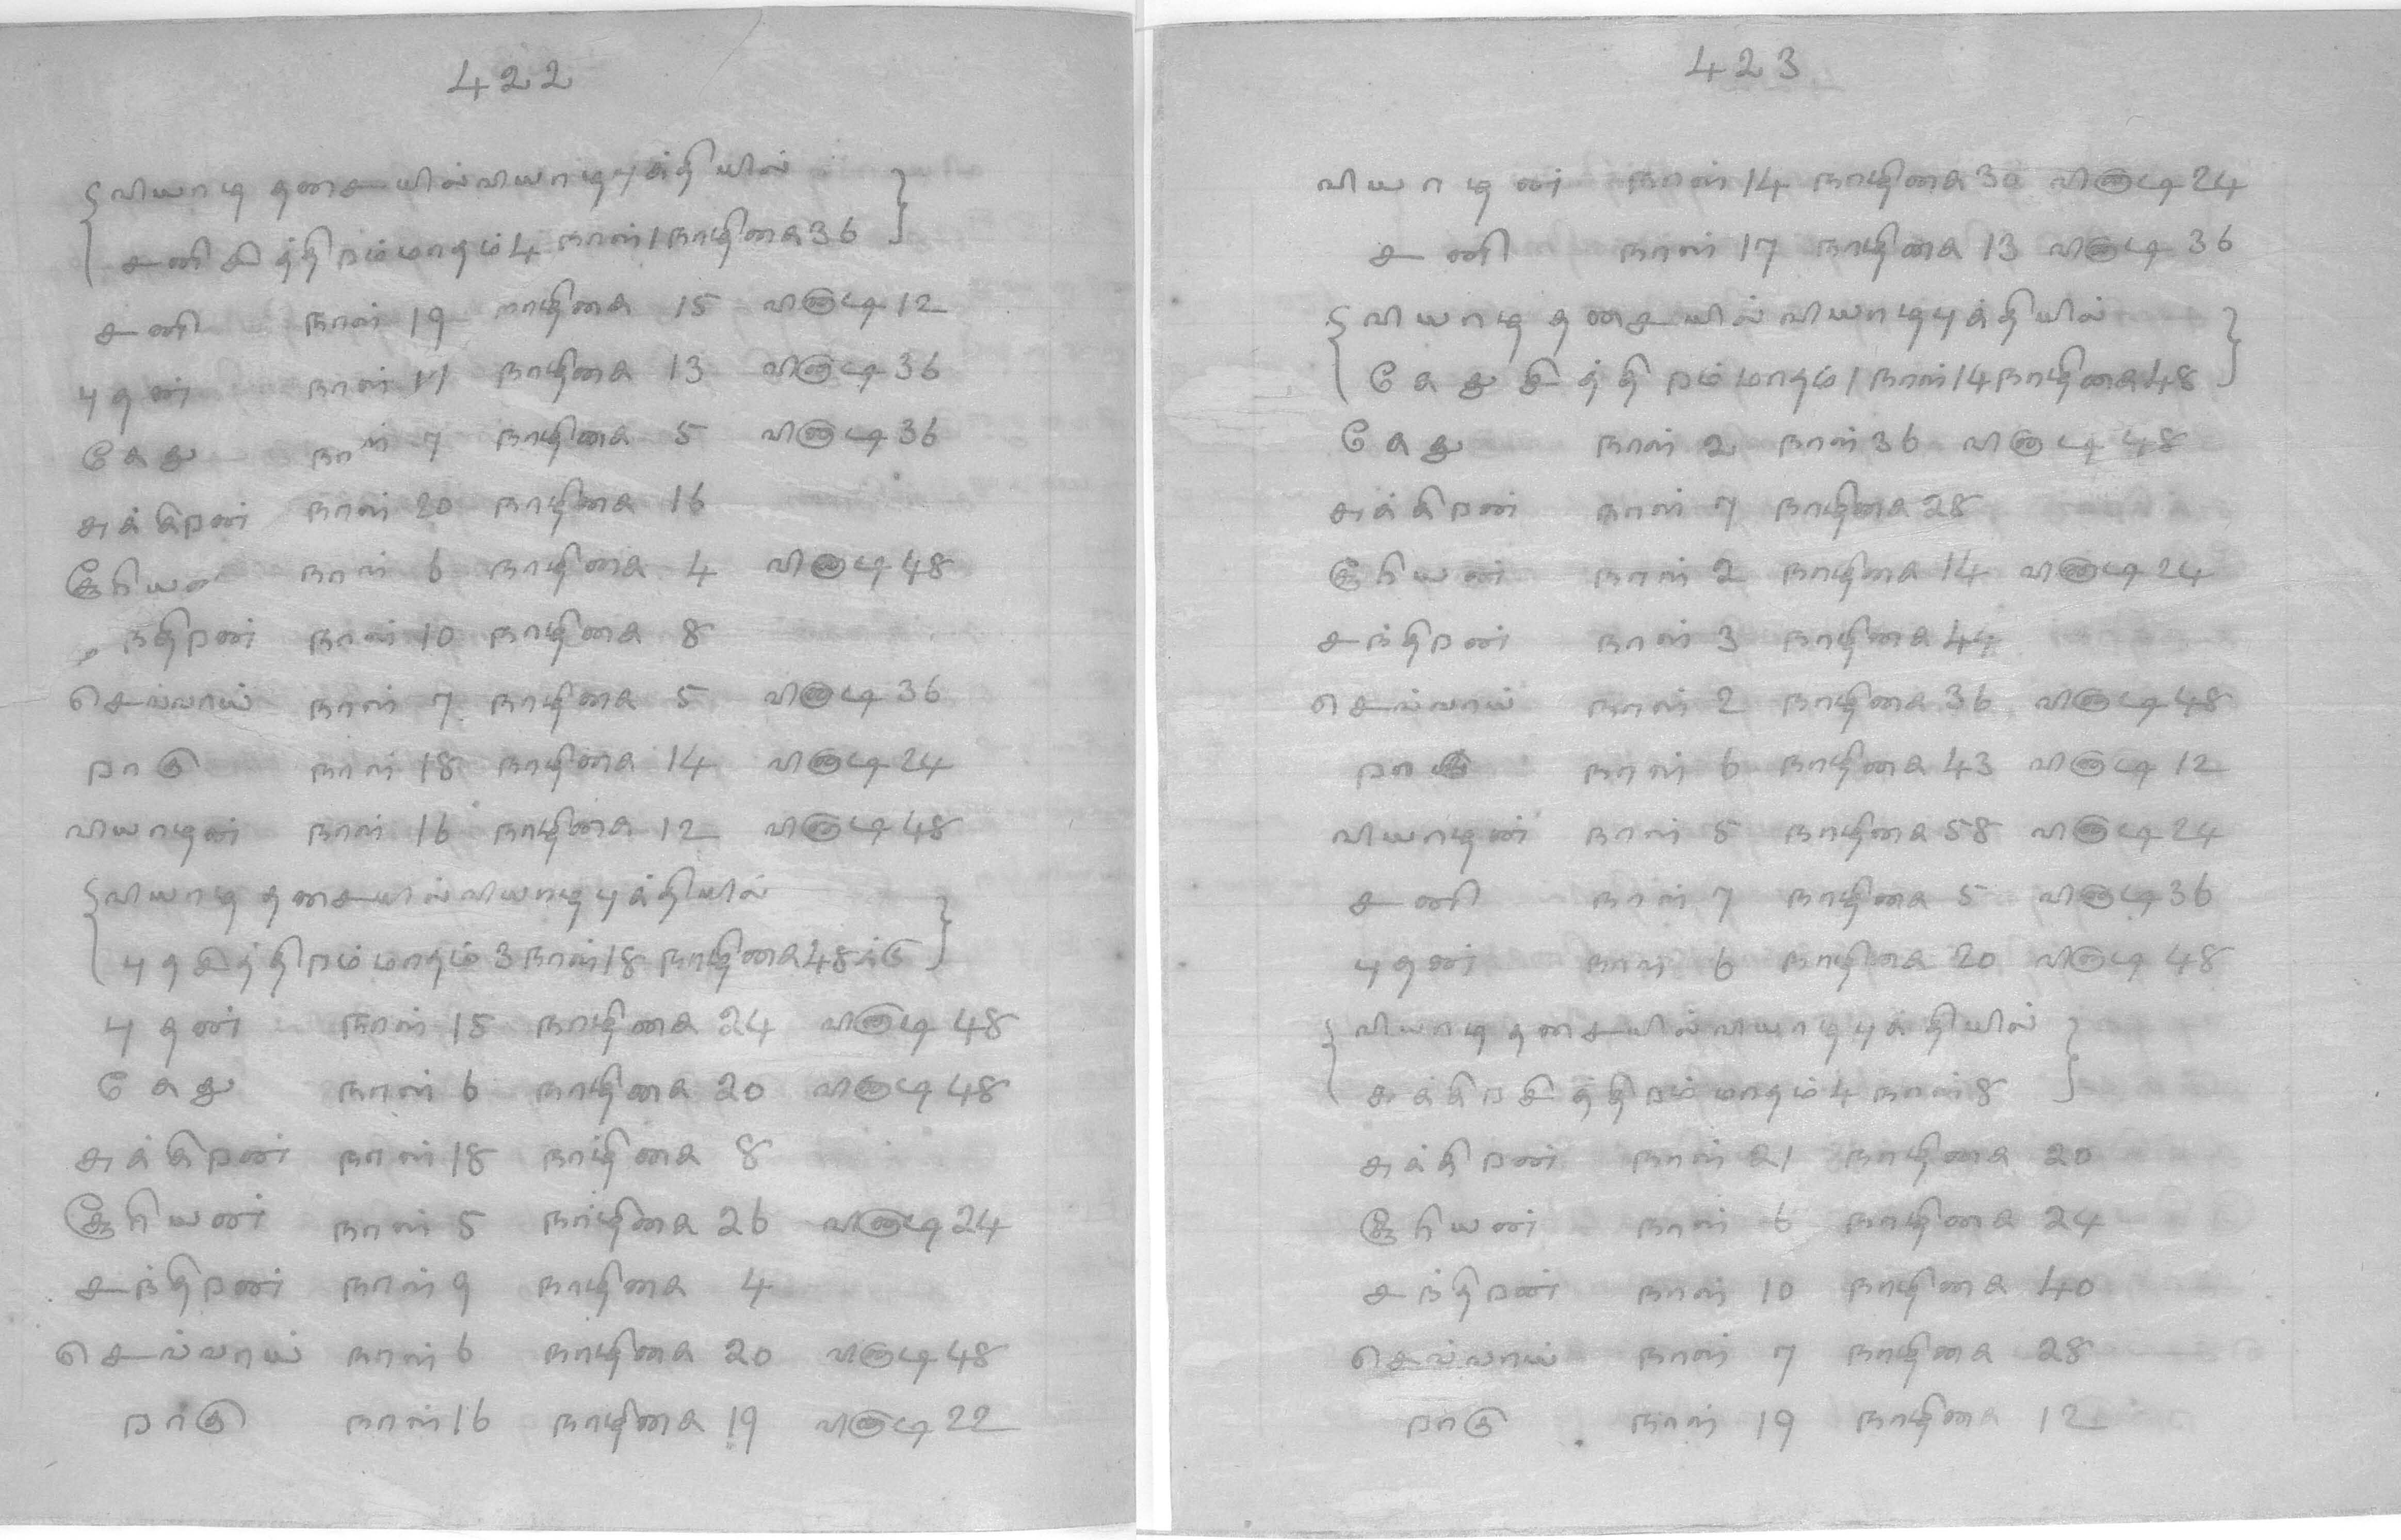 422
{ வியாழ தசையில் வியாழபுக்தியில்
சனி சித்திறம் மாதம் 4 நாள் 1 நாழிகை 36 }
சனி நாள் 19 நாழிகை 15 விநாடி 12
புதன் நாள் 17 நாழிகை 13 விநாடி 36
கேது நாள் 7 நாழிகை 5 விநாடி 36
சுக்கிறன் நாள் 20 நாழிகை 16
சூரியன் நாள் 6 நாழிகை 4 விநாடி 48
ந்திறன் நாள் 10 நாழிகை 8
செவ்வாய் நாள் 7 நாழிகை 5 விநாடி 36
றாகு நாள் 18 நாழிகை 14 விநாடி 24
வியாழன் நாள் 16 நாழிகை 12 விநாடி 48
{ வியாழ தசையில் வியாழபுக்தியில்
புதசித்திறம் மாதம் 3 நாள் 18 நாழிகை 48க்கு }
புதன் நாள் 15 நாழிகை 24 விநாடி 48
கேது நாள் 6 நாழிகை 20 விநாடி 48
சுக்கிறன் நாள் 18 நாழிகை 8
சூரியன் நாள் 5 நாழிகை 26 விநாடி 24
சந்திறன் நாள் 9 நாழிகை 4
செவ்வாய் நாள் 6 நாழிகை 20 விநாடி 48
றாகு நாள் 16 நாழிகை 19 விநாடி 22
423
வியாழன் நாள் 14 நாழிகை 30 விநாடி 24
சனி நாள் 17 நாழிகை 13 விநாடி 36
{ வியாழ தசையில் வியாழபுக்தியில்
கேது சித்திறம் மாதம் 1 நாள் 14 நாழிகை 48 }
கேது நாள் 2 நாள் 36 விநாடி 48
சுக்கிறன் நாள் 7 நாழிகை 28
சூரியன் நாள் 2 நாழிகை 14 விநாடி 24
சந்திறன் நாள் 3 நாழிகை 44
செவ்வாய் நாள் 2 நாழிகை 36 விநாடி 48
றாகு நாள் 6 நாழிகை 43 விநாடி 12
வியாழன் நாள் 5 நாழிகை 58 விநாடி 24
சனி நாள் 7 நாழிகை 5 விநாடி 36
புதன் நாள் 6 நாழிகை 20 விநாடி 48
{ வியாழ தசையில் வியாழபுக்தியில்
சுக்கிறசித்திறம் மாதம் 4 நாள் 8 }
சுக்கிறன் நாள் 21 நாழிகை 20
சூரியன் நாள் 6 நாழிகை 24
சந்திறன் நாள் 10 நாழிகை 40
செவ்வாய் நாள் 7 நாழிகை 28
றாகு நாள் 19 நாழிகை 12